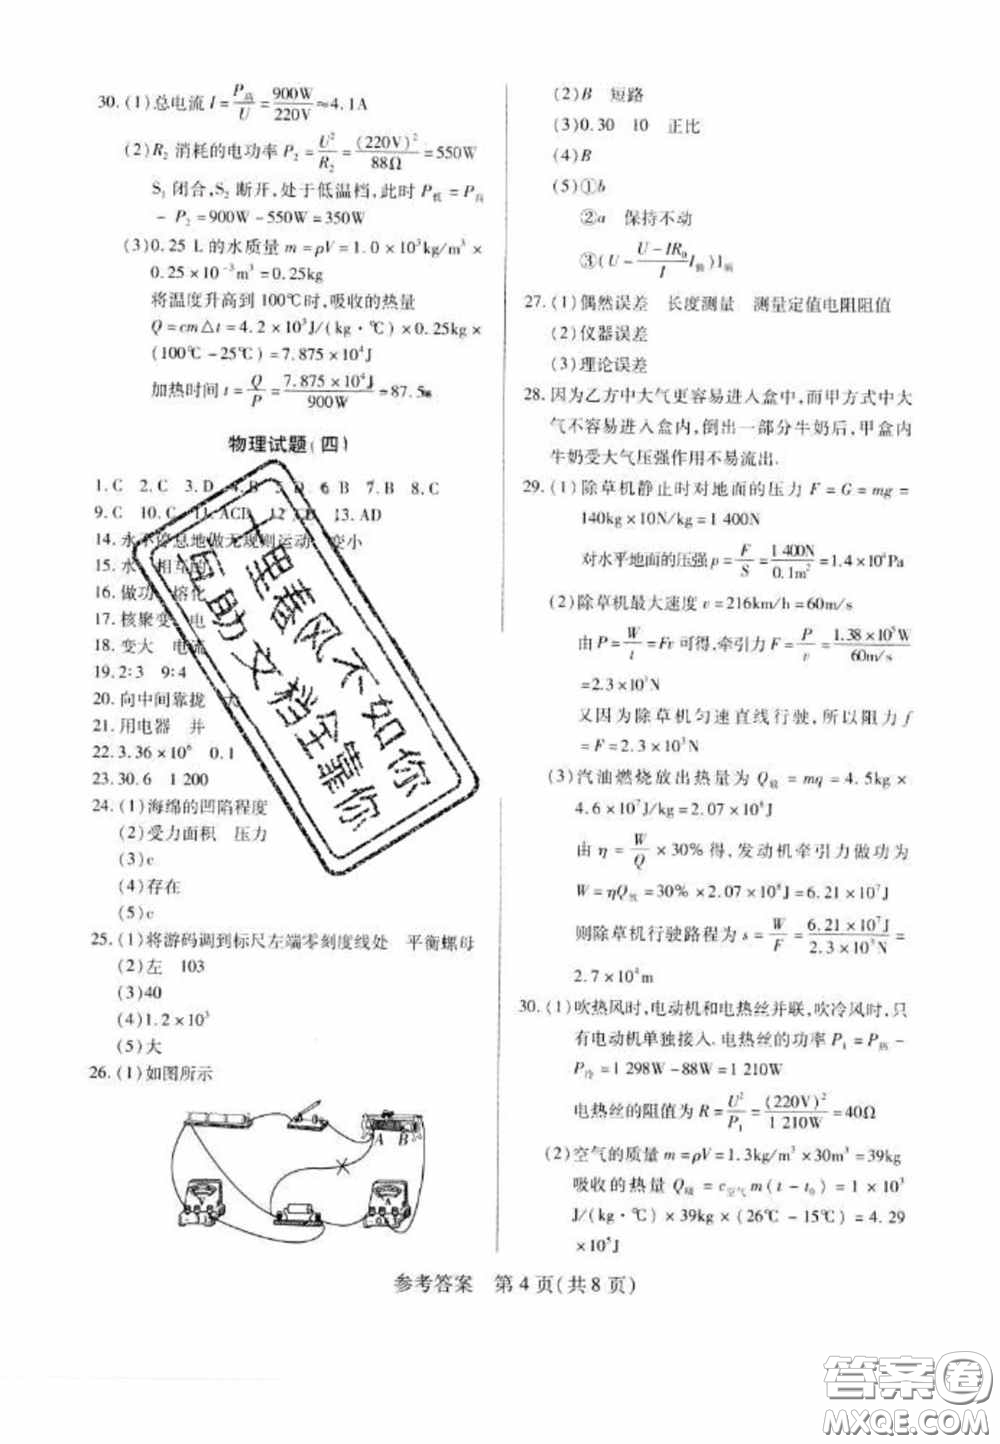 30.(1)总电流 I = P高/U = 900W/220V ≈4.1A
(2)R₂ 消耗的电功率 P₂ = U²/R₂ = (220V)²/88Ω = 550W
S₁ 闭合,S₂ 断开,处于低温档,此时 P低 = P高
- P₂ = 900W - 550W = 350W
(3)0.25 L 的水质量 m = ρV = 1.0 × 10³kg/m³ ×
0.25 × 10⁻³m³ = 0.25kg
将温度升高到 100℃时,吸收的热量
Q = cm△t = 4.2 × 10³J/(kg·℃) × 0.25kg ×
(100℃ - 25℃) = 7.875 × 10⁴J
加热时间 t = Q/P = 7.875 × 10⁴J/900W = 87.5s
物理试题(四)
1.C 2.C 3.D 4.B 5.D 6.B 7.B 8.C
9.C 10.C 11.ACD 12.CD 13.AD
14.永不停息地做无规则运动 变小
15.水 相互的
16.做功 熔化
17.核聚变 电
18.变大 电流
19.2:3 9:4
20.向中间靠拢
21.用电器 并
22.3.36 × 10⁶ 0.1
23.30.6 1 200
24.(1)海绵的凹陷程度
(2)受力面积 压力
(3)c
(4)存在
(5)c
25.(1)将游码调到标尺左端零刻度线处 平衡螺母
(2)左 103
(3)40
(4)1.2 × 10³
(5)大
26.(1)如图所示
A B
V A
(2)B 短路
(3)0.30 10 正比
(4)B
(5)①b
②a 保持不动
③(U - (U - IR₀)/I I额)I额
27.(1)偶然误差 长度测量 测量定值电阻阻值
(2)仪器误差
(3)理论误差
28.因为乙方中大气更容易进入盒中,而甲方式中大
气不容易进入盒内,倒出一部分牛奶后,甲盒内
牛奶受大气压强作用不易流出.
29.(1)除草机静止时对地面的压力 F = G = mg =
140kg × 10N/kg = 1 400N
对水平地面的压强 p = F/S = 1 400N/0.1m² = 1.4 × 10⁴Pa
(2)除草机最大速度 v = 216km/h = 60m/s
由 P = W/t = Fv 可得,牵引力 F = P/v = 1.38 × 10⁵W/60m/s
= 2.3 × 10³N
又因为除草机匀速直线行驶,所以阻力 f
= F = 2.3 × 10³N
(3)汽油燃烧放出热量为 Q放 = mq = 4.5kg ×
4.6 × 10⁷J/kg = 2.07 × 10⁸J
由 η = W/Q × 30% 得,发动机牵引力做功为
W = ηQ放 = 30% × 2.07 × 10⁸J = 6.21 × 10⁷J
则除草机行驶路程为 s = W/F = 6.21 × 10⁷J/2.3 × 10³N =
2.7 × 10⁴m
30.(1)吹热风时,电动机和电热丝并联,吹冷风时,只
有电动机单独接入.电热丝的功率 P₁ = P热 -
P冷 = 1 298W - 88W = 1 210W
电热丝的阻值为 R = U²/P₁ = (220V)²/1 210W = 40Ω
(2)空气的质量 m = ρV = 1.3kg/m³ × 30m³ = 39kg
吸收的热量 Q吸 = c空气m(t - t₀) = 1 × 10³
J/(kg·℃) × 39kg × (26℃ - 15℃) = 4.29
× 10⁵J
十里春风不如你
互助文档全靠你
参考答案 第 4 页(共 8 页)
答案圈
MXQE.COM